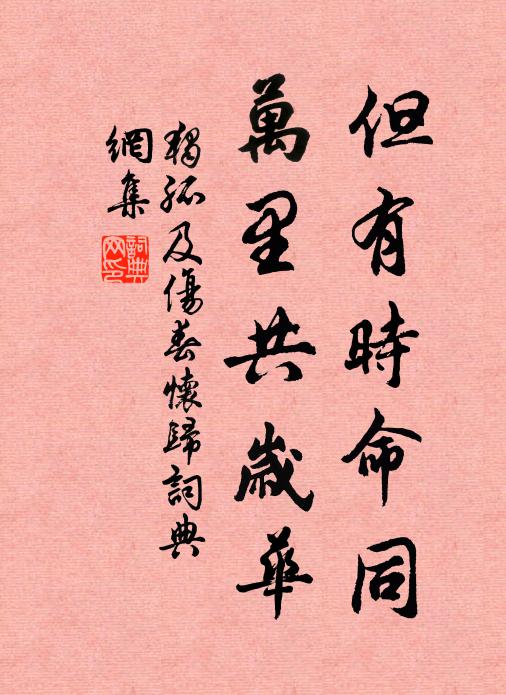 但有時命同
萬里共歲華
獨孤及傷春懷歸詞典
網集
詞典
网印